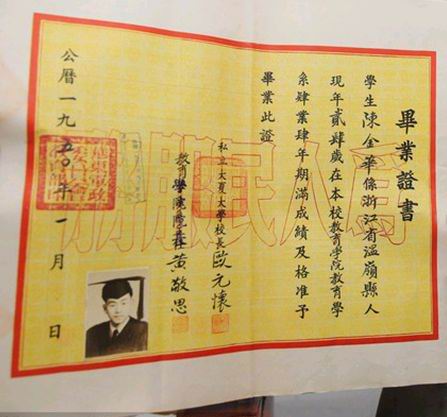 畢業證書
學生陳金華係浙江省溫嶺縣人
現年貳肆歲在本校教育學院教育學
系肄業肆年期滿成績及格准予
畢業此證
私立大夏大學校長歐元懷
教育學院院長黃敬思
公曆一九五〇年一月 日
為人民服務